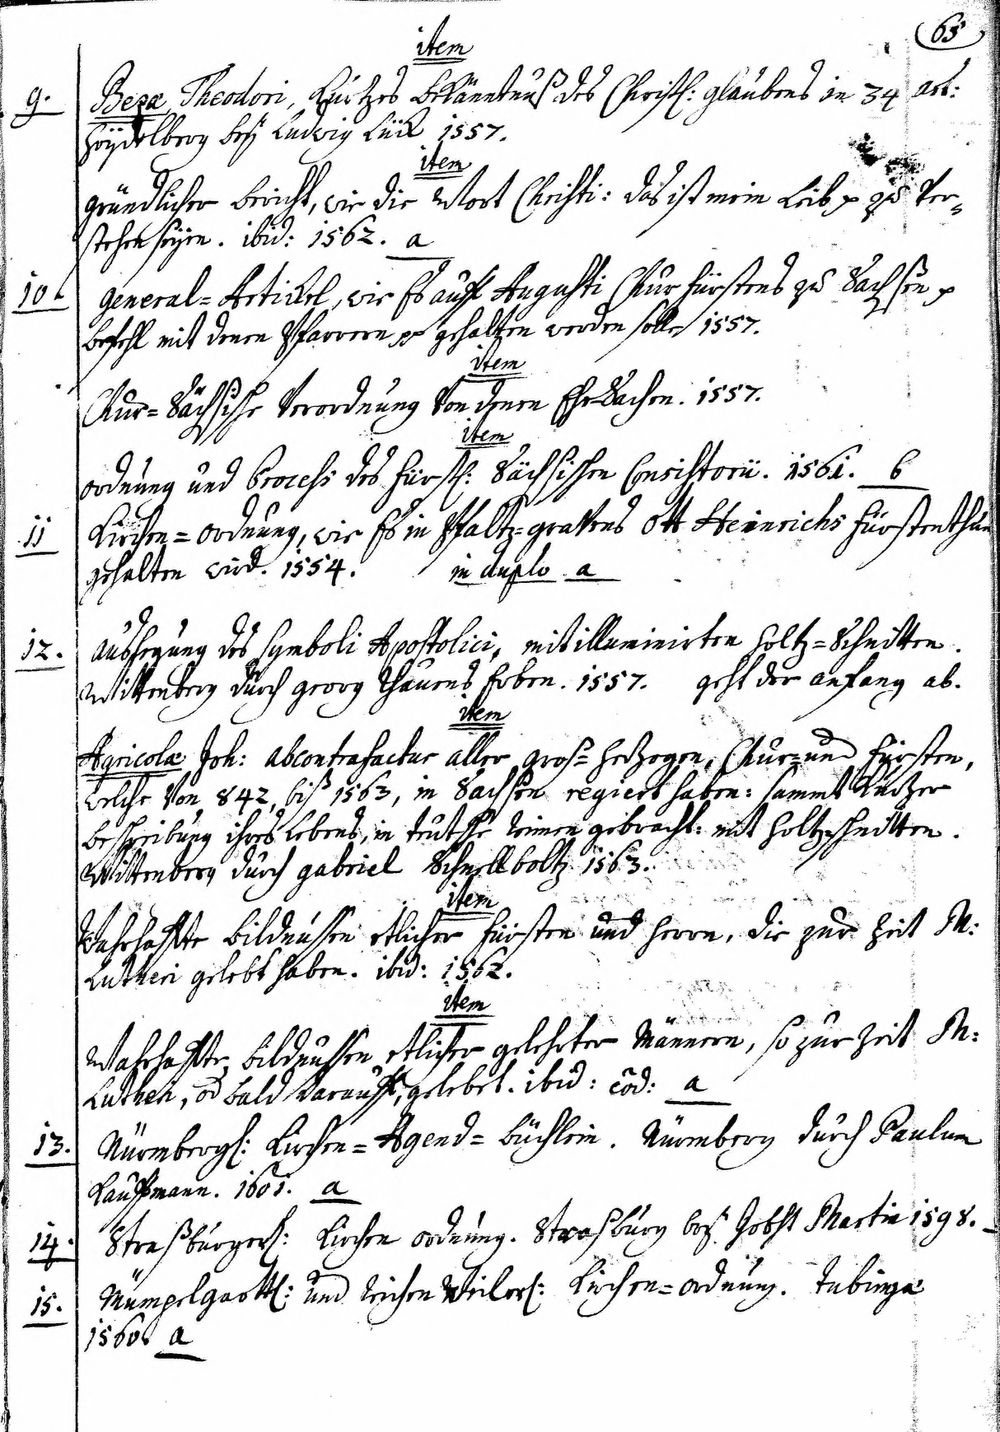 65
item
9. Beza, Theodori, Kurtzes bekänntnuß des Christl: glaubens in 34 art:
Heydelberg bey Ludwig Lück 1557.
item
gründlicher bericht, wie die Wort Christi: das ist mein Leib zu Ver-
stehen seyen. ibid: 1562. a
10. general=Articul, wie Es auff Augusti Churfürstens zu Sachsen
befehl mit denen Pfarrern gehalten werden solle 1557.
item
Chur=Sächsische Verordnung Von denen Ehe Sachen. 1557.
item
ordnung und Process des fürstl: Sächsischen Consistorii. 1561. b
11 Kirchen=ordnung, wie Es in Pfaltz=gravens Ott Heinrichs fürstenthum
gehalten wird. 1554. in duplo a
12. auslegung des Symboli Apostolici, mit illuminirten holtz=Schnitten.
Wittenberg durch georg Rhauens Erben. 1557. geht der anfang ab.
item
Agricolæ Joh: abcontrafactur aller gros= hertzogen, Chur= und fürsten,
welche Von 842, biß 1563, in Sachsen regiert haben: sammt Kurtzer
beschreibung ihres Lebens, in teutsche reimen gebracht: mit holtzschnitten.
Wittenberg durch gabriel Schnellboltz 1563.
item
Wahrhaffte bildnussen etlicher fürsten und herrn, die zur Zeit M:
Lutheri gelebt haben. ibid: 1562.
item
Wahrhaffte bildnussen etlicher gelehrter Männern, so zur Zeit M:
Lutheri, od bald darauff, gelebet. ibid: eod: a
13. Nürmbergl: Kirchen=Agend=büchlein. Nürmberg durch Paulum
Kauffmann. 1601. a
14. Straßburgerl: Kirchen ordnung. Straßburg bey Jobst Martin 1598.
15. Mümpelgartl: und reichenweilerl: Kirchen=ordnung. Tubingæ
1560. a